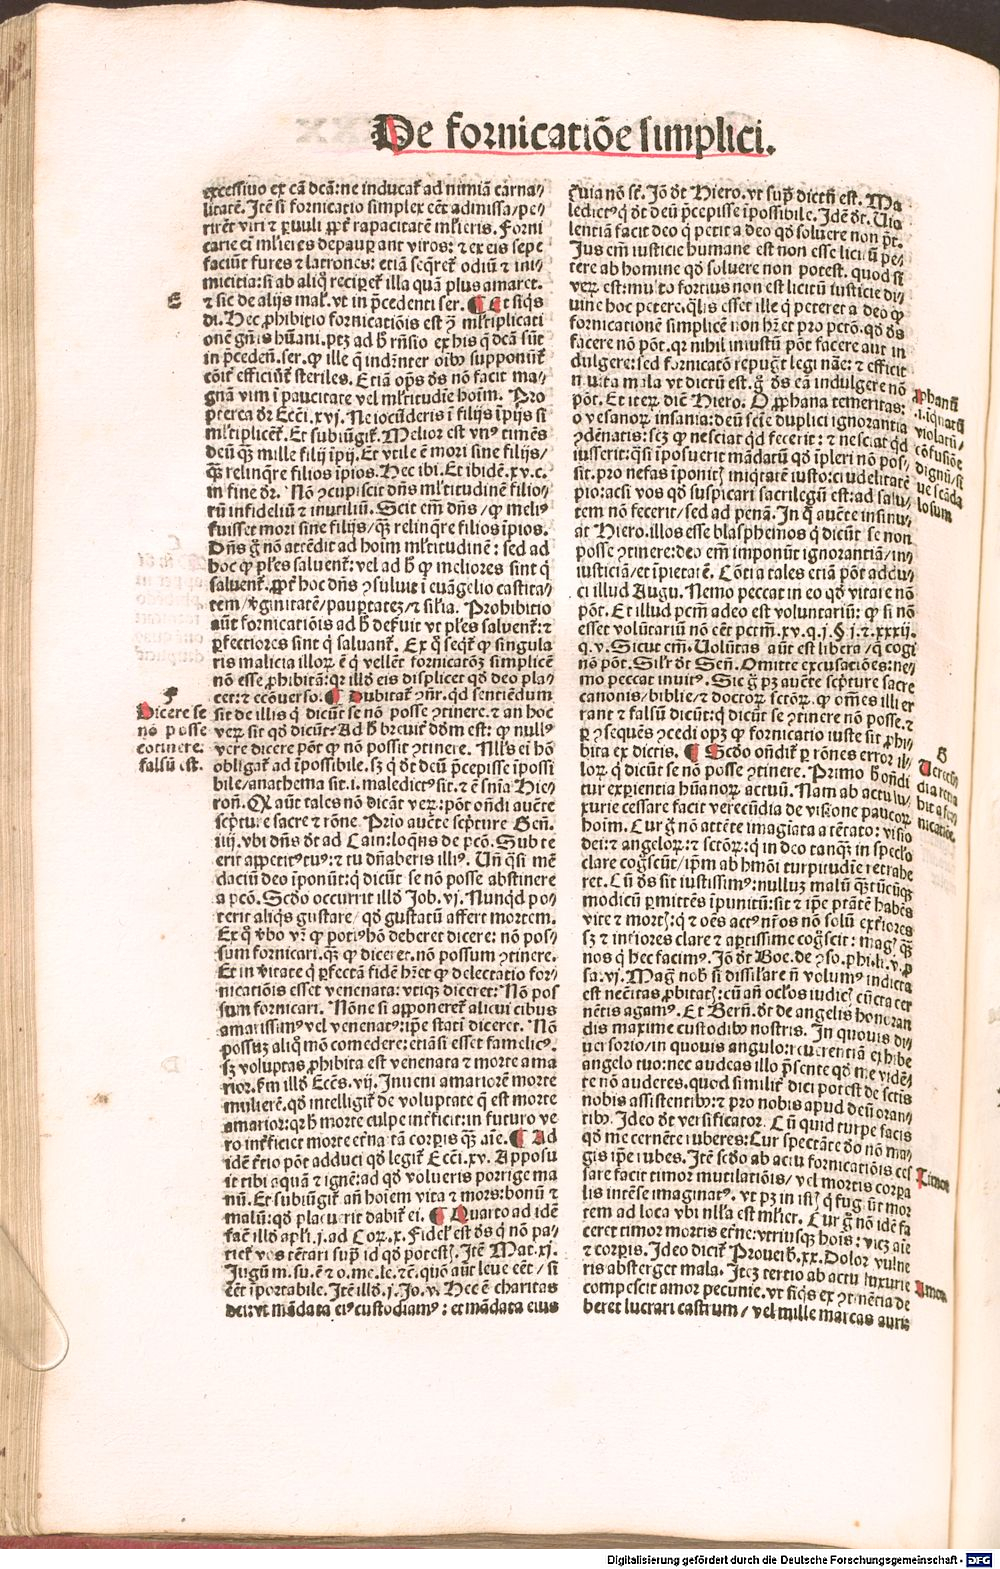 De fornicatiōe simplici.
excessiuo ex cā dcā: ne inducat̄ ad nimiā carna⸗
litatē. Itē si fornicatio simplex eēt admissa/pe⸗
rirēt viri ⁊ ꝑuuli ꝓpt̄ rapacitatē ml̄ieris. Forni
carie em̄ ml̄ieres depauꝑant viros: ⁊ ex eis sepe
faciūt fures ⁊ latrones: etiā seq̄ret̄ odiū ⁊ ini⸗
micitia: si ab aliq̄ reciperet̄ illa quā plus amaret.
E
⁊ sic de alijs mal̄. vt in p̄cedenti ser. ¶ Et siq̄s
di. Hec ꝓhibitio fornicatiōis est ꝯ̄ ml̄tiplicati
onē gn̄is hūani. ptꝫ ad h̄ rn̄sio ex his q̄ dcā sūt
in p̄cedeñ. ser. ꝙ ille q̄ indn̄ter oīb⁹ supponūt̄
coīt̄ efficiūt̄ steriles. Etiā op̄s dn̄s nō facit ma⸗
gnā vim ī paucitate vel ml̄titudīe hoīm. Pro
pterea dr̄ Ecci. xvj. Ne iocūderis ī filijs īpijs si
ml̄tiplicēt̄. Et subiūgit̄. Melior est vn⁹ timēs
deū q̄ꝫ mille filij īpij. Et vtile ē mori sine filijs/
q̄ꝫ relinq̄re filios īpios. Hec ibi. Et ibidē. xv. c.
in fine dr̄. Nō ꝯcupiscit dn̄s ml̄titudinē filio⸗
rū infideliū ⁊ inutiliū. Scit em̄ dn̄s/ ꝙ meli⁹
fuisset mori sine filijs/q̄ꝫ relinq̄re filios īpios.
Dn̄s g̊ nō attēdit ad hoīm ml̄titudinē: sed ad
hoc ꝙ pl̄es saluent̄: vel ad h̄ ꝙ meliores sint q̄
saluent̄. ꝓpt̄ hoc dn̄s ꝯsuluit ī euāgelio castita⸗
tem/ v̄ginitatē/ paupertatēꝫ/⁊ sil̄ia. Prohibitio
aūt fornicatiōis ad h̄ defuit vt pl̄es saluent̄: ⁊
ꝑfectiores sint q̄ saluant̄. Ex q̊ seqt̄ ꝙ singula
ris malicia illoꝝ ē q̄ vellēt fornicatōꝫ simplicē
nō esse ꝓhibitā: qꝛ ill̄d eis displicet qd̄ deo pla⸗
cet: ⁊ ecōuerso. ¶ Dubitat̄ ꝯn̄r. qd sentiēdum
F
Dicere se
nō posse
cōtinere.
falsū est.
sit de illis q̄ dicūt se nō posse ꝯtinere. ⁊ an hoc
veꝝ sit qd̄ dicūt? Ad h̄ breuit̄ dōm est: ꝙ null⁹
vere dicere pōt ꝙ nō possit ꝯtinere. Null⁹ ei hō
obligat̄ ad īpossibile. sꝫ q̄ dt̄ deū p̄cepisse īpossi
bile/anathema sit. i. maledict⁹ sit. ⁊ ē sn̄ia Hie⸗
roñ. Qꝛ aūt tales nō dicāt veꝝ: pōt oñdi aucte
sc̄pture sacre ⁊ rōne. Prīo aucte sc̄pture Geñ.
iiij. vbi dn̄s dt̄ ad Cain: loqn̄s de pctō. Sub te
erit appetit⁹ tu⁹: ⁊ tu dn̄aberis illi⁹. Vñ q̄si mē
daciū deo īponūt: q̄ dicūt se nō posse abstinere
a pctō. Scd̄o occurrit ill̄d Job. vj. Nunqd po⸗
terit aliqs gustare/ qd̄ gustatū affert mortem.
Ex q̊ v̄bo vr̄ ꝙ poti⁹ hō deberet dicere: nō pos⸗
sum fornicari. q̄ꝫ ꝙ diceret. nō possum ꝯtinere.
Et in v̄itate q̄ ꝑfectā fidē hr̄et ꝙ delectatio for⸗
nicatiōis esset venenata: vtiqꝫ diceret: Nō pos
sum fornicari. Nōne si apponeret̄ alicui cibus
amarissim⁹ vel venenat⁹: ip̄e stati diceret. Nō
possuꝫ aliq̊ mō comedere: etiā si esset famelic⁹.
sꝫ voluptas ꝓhibita est venenata ⁊ morte ama
rior. ẜm ill̄d Ecc̄s. vij. Inueni amariorē morte
mulierē. qd̄ intelligit̄ de voluptate q̄ est morte
amarior: qꝛ h̄ morte culpe int̄ficit: in futuro ve
ro int̄ficiet morte et̄na tā corꝑis q̄ꝫ aīe. ¶ Ad
idē t̄rtio pōt adduci qd̄ legit̄ Ecci. xv. Apposu
it tibi aquā ⁊ ignē: ad qd̄ volueris porrige ma
nū. Et subiūgit̄ añ hoīem vita ⁊ mors: bonū ⁊
malū: qd̄ placuerit dabit̄ ei. ¶ Quarto ad idē
facit ill̄d apl̄i. j. ad Coꝝ. x. Fidel̄ est ds̄ q̄ nō pa⸗
tiet̄ vos tētari sup̄ id qd̄ potestꝭ. Itē Mat. xj.
Jugū m. su. ē ⁊ o. me. le. ⁊c̄. quō aūt leue eēt/ si
eēt īportabile. Itē ill̄d. j. Jo. v. Hec ē charitas
dei: vt mādata ei⁹ custodiam⁹: et mādata eius
grauia nō sūt. Jō dt̄ Hiero. vt sup̄ dictū est. Ma
ledict⁹ q̄ dt̄ deū p̄cepisse īpossibile. Idē dt̄. Uio
lentiā facit deo q̄ petit a deo qd̄ soluere non pōt.
Jus em̄ iusticie humane est non esse licitū pe⸗
tere ab homine qd̄ soluere non potest. quod si
veꝝ est: multo fortius non est licitū iusticie di⸗
uine hoc petere. q̄lis esset ille q̄ peteret a deo ꝙ
fornicationē simplicē non hr̄et pro pctō. qd̄ ds̄
facere nō pōt. qꝛ nihil iniustū pōt facere aut in
dulgere: sed fornicatō repugt̄ legi nāe: ⁊ efficit
multa mala vt dictū est. g̊ ds̄ eā indulgere nō
pōt. Et iteꝝ diē Hiero. O ꝓphana temeritas:
o vesanoꝝ insania: deū seq̄ie duplici ignorantia
ꝯdēnatis: scꝫ ꝙ nesciat qd fecerit: ⁊ nesciat qd
iusserit: q̄si iposuerit mādatū qd̄ īpleri nō pos⸗
sit. pro nefas iponitꝭ iniq̄tatē iusto: crudelitatē
pio: acsi vos qd̄ suspicari sacrilegū est: ad salu⸗
tem nō fecerit/ sed ad penā. In q̄ aucte insinu⸗
at Hiero. illos esse blasphemos q̄ dicūt se non
posse ꝯtinere: deo em̄ imponūt ignorantiā/ in⸗
iusticiā/ et īpietatē. Cōtra tales etiā pōt addu⸗
ci illud Augu. Nemo peccat in eo qd̄ vitare nō
pōt. Et illud pctm̄ adeo est voluntariū: ꝙ si nō
esset volūtariū nō eēt pctm̄. xv. q. j. § j. ⁊ xxxij.
q. v. Sicut em̄. Uolūtas aūt est libera/ q̄ cogi
nō pōt. Sil̄r dt̄ Señ. Omitte excusatiōes: ne⸗
mo peccat inuit⁹. Sic g̊ pꝫ aucte sc̄pture sacre
canonis/ biblie/ ⁊ doctoꝝ sctōꝝ. ꝙ om̄es illi er
rant ⁊ falsū dicūt: q̄ dicūt se ꝯtinere nō posse. ⁊
ꝑ ꝯseq̄ues ꝯcedi opꝫ ꝙ fornicatio iuste sit ꝓhi⸗
bita ex dictis. ¶ Scd̄o oñdit̄ ꝑ rōnes error il⸗
loꝝ q̄ dicūt se nō posse ꝯtinere. Primo h̄ oñdi
tur exꝑientia hūanoꝝ actuū. Nam ab actu lu⸗
xurie cessare facit verecūdia de visione paucoꝝ
hoīm. Cur g̊ nō attēte imagīata a tētato: visio
dei: ⁊ angeloꝝ: ⁊ sctōꝝ: q̄ in deo tanqꝫ in speclo
clare cog̊scūt/ ip̄m ab hmōi turpitudīe retrahe
ret. Cū ds̄ sit iustissim⁹: nulluꝫ malū q̄ꝫtūcūqꝫ
modicū ꝑmittēs īpunitū: sit ⁊ ip̄e ptātē habēs
vite ⁊ mortꝭ: q̄ ⁊ oēs act⁹ nr̄os nō solū ext̄iores
sꝫ ⁊ int̄iores clare ⁊ aptissime cog̊scit: magꝭ q̄ꝫ
nos q̄ hec facim⁹. Jō dt̄ Boe. de ꝯso. phi. li. v. ꝓ
sa. vj. Mag̊ nob̄ si dissilare ñ volum⁹ indicta
est neētitas ꝓbitatꝭ: cū añ ocl̄os iudicꝭ cūcta cer
nētis agam⁹. Et Berñ. dt̄ de angelis honoran
dis maxime custodib⁹ nostris. In quouis di⸗
uersorio/ in quouis angulo: reuerentiā exhibe
angelo tuo: nec audeas illo p̄sente qd̄ me vidē⸗
te nō auderes. quod similit̄ dici potest de sctīs
nobis assistentib⁹: ⁊ pro nobis apud deū oran⸗
tib⁹. Ideo dt̄ versificator. Cū quid turpe facis
qd̄ me cernēte iuberes: Cur spectāte do nō ma⸗
gis ip̄e iubes. Itē scd̄o ab actu fornicatiōis ces
sare facit timor mutilatiōis/ vel mortis corꝑa
lis intēse imaginat⁹. vt pꝫ in istꝭ q̄ fugiūt mor
tem ad loca vbi nlla est ml̄ier. Cur g̊ nō idē fa
ceret timor mortis et̄ne: vtriusqꝫ hoīs: vicꝫ aīe
⁊ corꝑis. Ideo dicit̄ Prouerb̄. xx. Dolor vulne
ris absterget mala. Iteꝫ tertio ab actu luxurie
compescit amor pecunie. vt siq̄s ex ꝯtinētia de
beret lucrari castrum/ vel mille marcas auri:
ꝓphanū
.i. iniquatū
violatū/
cōfusiōe
dignū/ si
ue scāda
losum
G
Uerecū
dia retra
hit a for
nicatiōe.
Timor
Amor